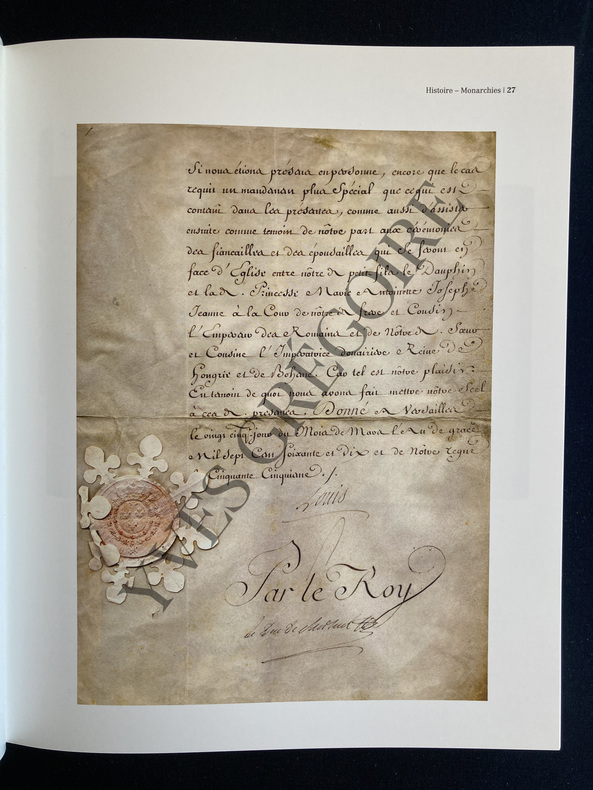 Histoire – Monarchies | 27
Si nous étions présens en personne, encore que le cas
requit un mandement plus Spécial que ce qui est
contenu dans les presentes, comme aussi d'assister
ensuite comme temoin de nôtre part aux cérémonies
des fiancailles et des épousailles qui se feront en
face d'Eglise entre nôtre d. petit fils le Dauphin
et la d. Princesse Marie Antoinette Josephe
Jeanne à la Cour de nôtre d. frere et Cousin
l'Empereur des Romains et de Nôtre d. Soeur
et Cousine l'Impératrice douairiere Reine de
Hongrie et de Boheme. Car tel est nôtre plaisir.
En temoin de quoi nous avons fait mettre nôtre Scel
à ces d. presentes. Donné à Versailles
le vingt cinq jour du Mois de Mars l'An de grace
Mil Sept Cent Soixante et dix et de Nôtre regne
le Cinquante Cinquieme ./.
Louis
Par le Roy
YVES GRÉGOIRE